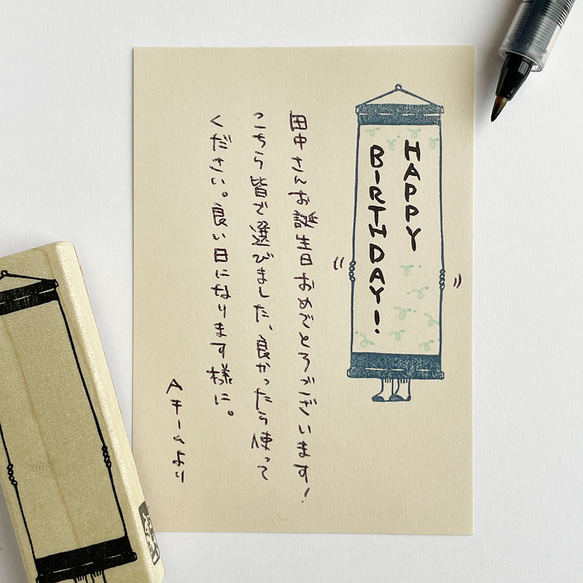 HAPPY
BIRTHDAY!
田中さんお誕生日おめでとうございます!
こちら皆で選びました、良かったら使って
ください。良い日になります様に。
Aチームより